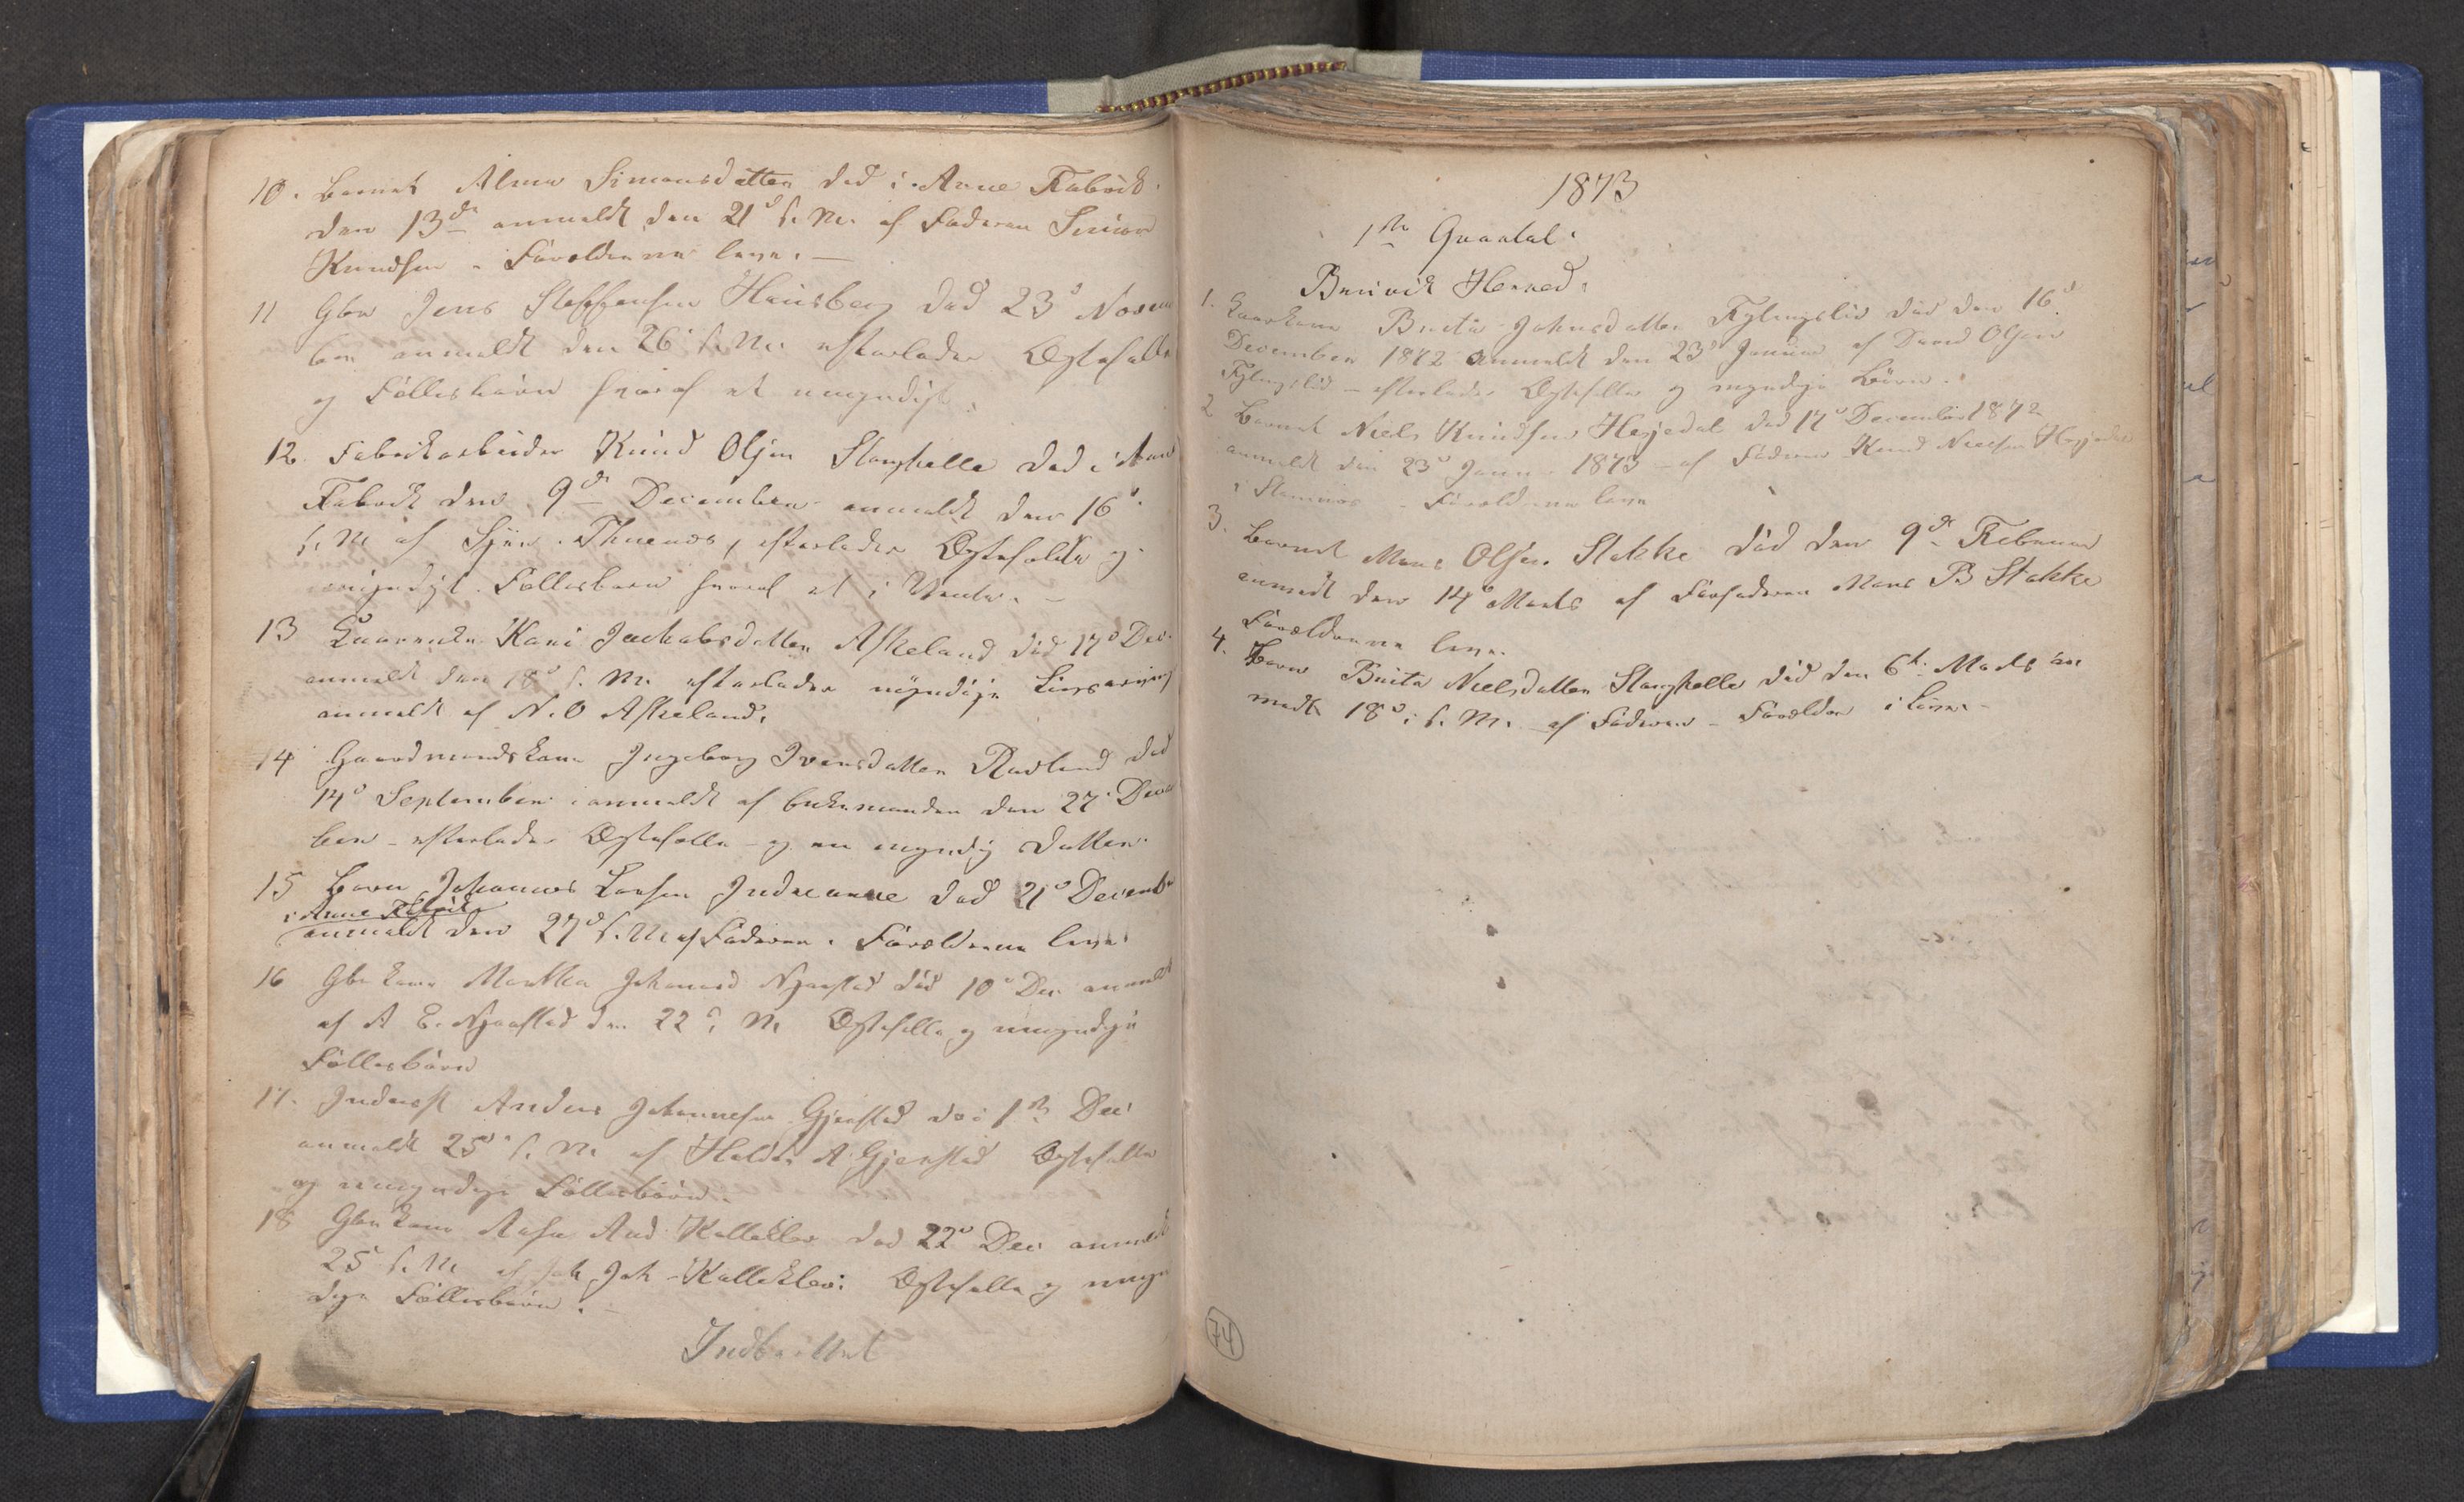 10. Barnet Alma Simonsdatter død i Arne Fabrik
den 13de anmeldt den 21d s. M. af Faderen Simon
Knudsen - Forældrene leve. -
11 Gbr Jens Steffensen Hausberg død 23d Novem
ber anmeldt den 26d s. M. efterlader Ægtefælle
og Fællesbørn hvoraf et umyndigt.
12. Fabrikarbeider Knud Olsen Stanghelle død i Arne
Fabrik den 9de December anmeldt den 16d
s. M. af Sjur, efterlader Ægtefælle og
umyndigt Fællesbarn hvoraf et i Vente. -
13 Kaarenke Kari Jackobsdatter Askeland død 17d Dec.
anmeldt den 18d s. M. efterlader myndige Livsarving
anmeldt af N. O Askeland.
14 Gaardmandskone Ingeborg Iversdatter død
14d September anmeldt af Enkemanden den 27d Decem
ber - efterlader Ægtefælle - og en myndig Datter.
15 Barn Johannes Larsen Indrearne død 21d Decembr
i Arne Fabrik
anmeldt den 27d s. M. af Faderen. Forældrene leve.
16 Gbr kone Martha Johannesd død 10d Dec anmeldt
af A E. den 22 s. M. Ægtefælle og umyndige
Fællesbørn
17. Inderst Anders Johannesen Gjerstad død 1ste Dec
anmeldt 25d s. M. af Haldor A Gjerstad Ægtefælle
og umyndige Fællesbørn.
18 Gbr kone And Kalleklev død 22d Dec anmeldt
25 s. M. af Joh Kalleklev: Ægtefælle og umyn
dige Fællesbørn. -
Indberettet
1873
1ste Qvartal.
Bruvik Herred.
1. Kaarkone Brita Johnsdatter død den 16d
December 1872 anmeldt den 23d Januar af Olsen
- efterlader Ægtefælle og myndige Børn.
2 Barnet Niels Knudsen Hesjedal død 17d December 1872
anmeldt den 23d Januar 1873 - af Faderen Knud Nielsen Hesjedal
i Stamnæs - Forældrene leve
3. Barnet Mons Olsen Stakke død den 9de Februar
anmeldt den 14d Marts af Farfaderen Mons B Stakke
Forældrene leve.
4. Barn Brita Nielsdatter Stanghelle død den 6te Marts an
meldt 18d i s. M. af Faderen - Forældre i Live. -
74